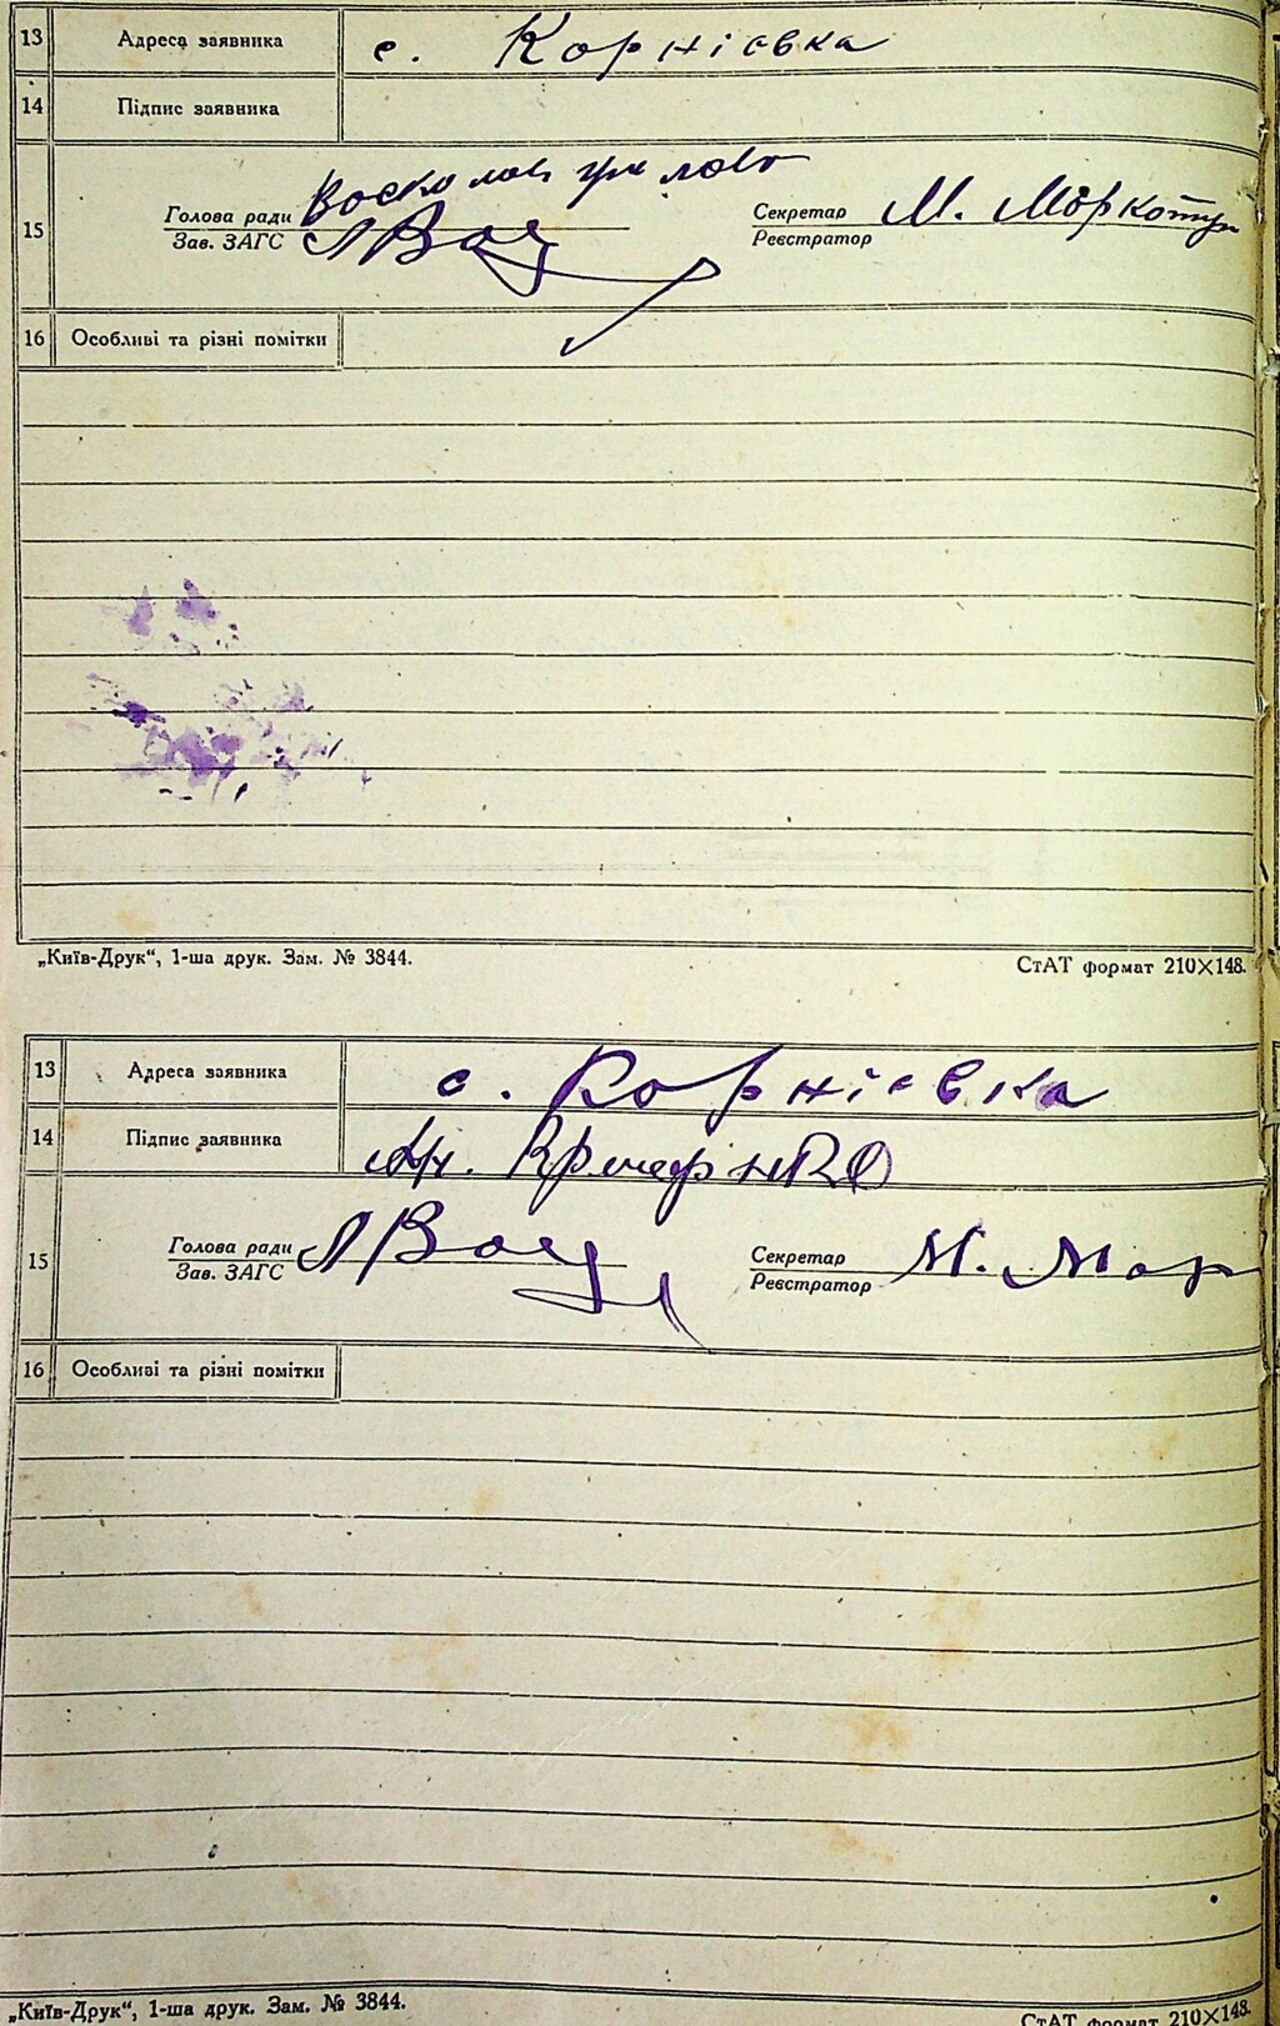 13 Адреса заявника с. Корнієвка
14 Підпис заявника
15 Голова ради
Зав. ЗАГС
Секретар М. Моркотун
Реєстратор
16 Особливі та різні помітки
„Київ-Друк“, 1-ша друк. Зам. № 3844. СтАТ формат 210×148.
13 Адреса заявника с. Корнієвка
14 Підпис заявника
15 Голова ради
Зав. ЗАГС
Секретар М. Мор
Реєстратор
16 Особливі та різні помітки
„Київ-Друк“, 1-ша друк. Зам. № 3844. СтАТ формат 210×148.